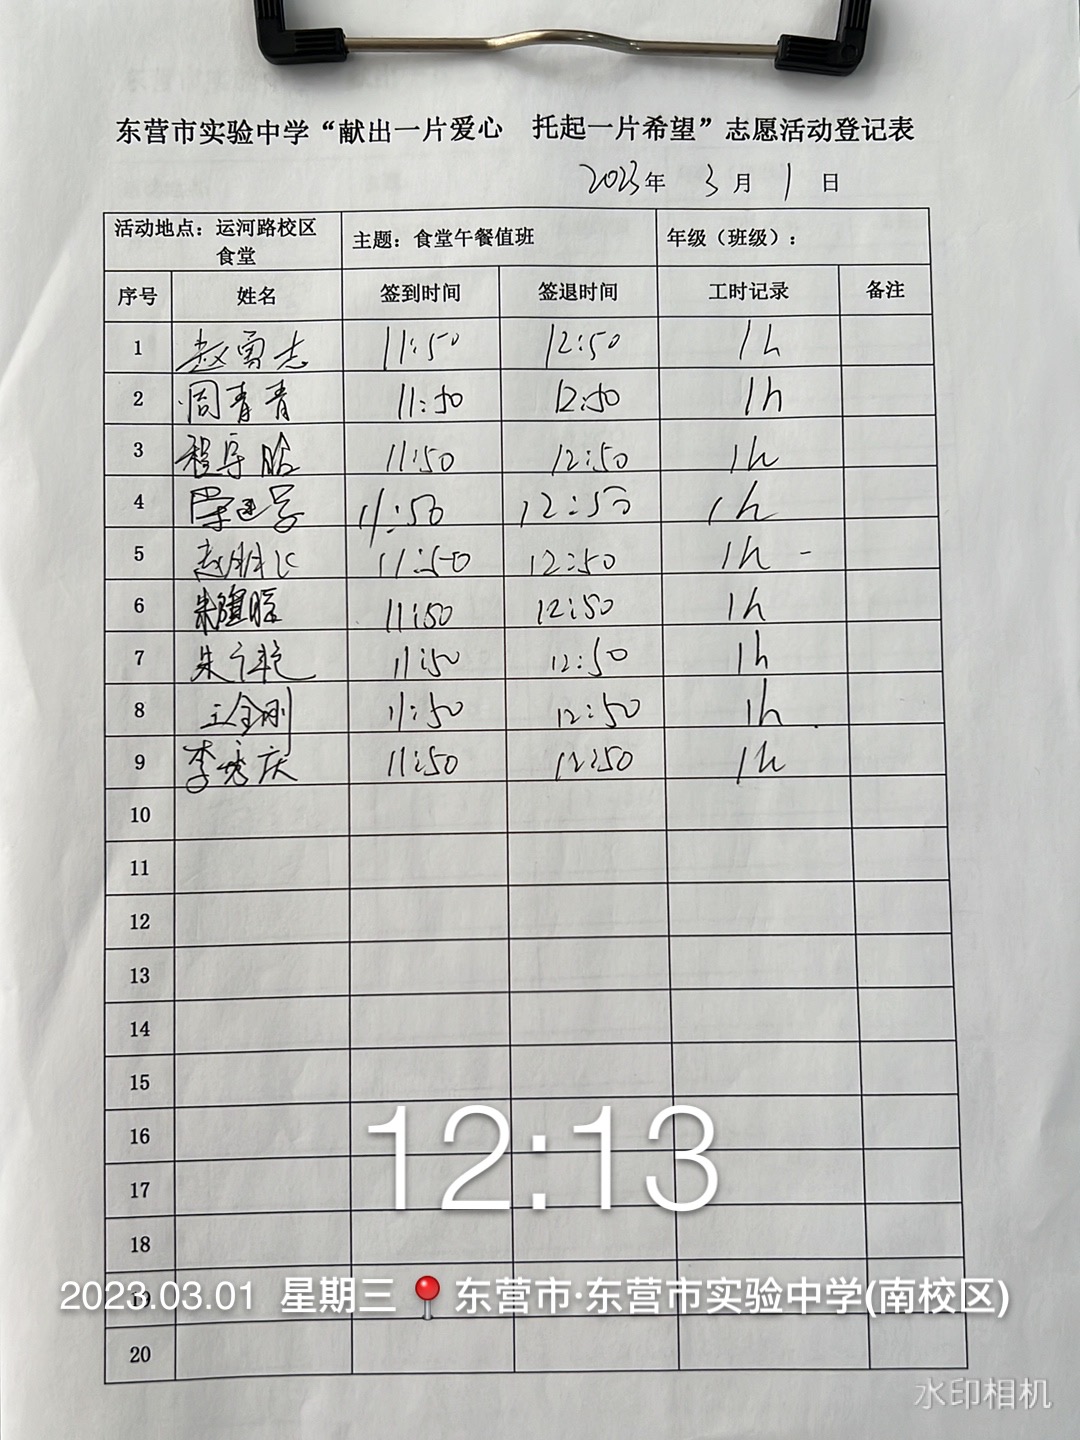 东营市实验中学“献出一片爱心 托起一片希望”志愿活动登记表
2023年 3月 1日
活动地点：运河路校区食堂 主题：食堂午餐值班 年级（班级）：
序号 姓名 签到时间 签退时间 工时记录 备注
1 赵勇志 11:50 12:50 1h
2 周青青 11:50 12:50 1h
3 11:50 12:50 1h
4 11:50 12:50 1h
5 11:50 12:50 1h -
6 11:50 12:50 1h
7 11:50 12:50 1h
8 王金刚 11:50 12:50 1h
9 李秀庆 11:50 12:50 1h
10
11
12
13
14
15
16
12:13
17
18
19
2023.03.01 星期三 东营市·东营市实验中学(南校区)
20
水印相机